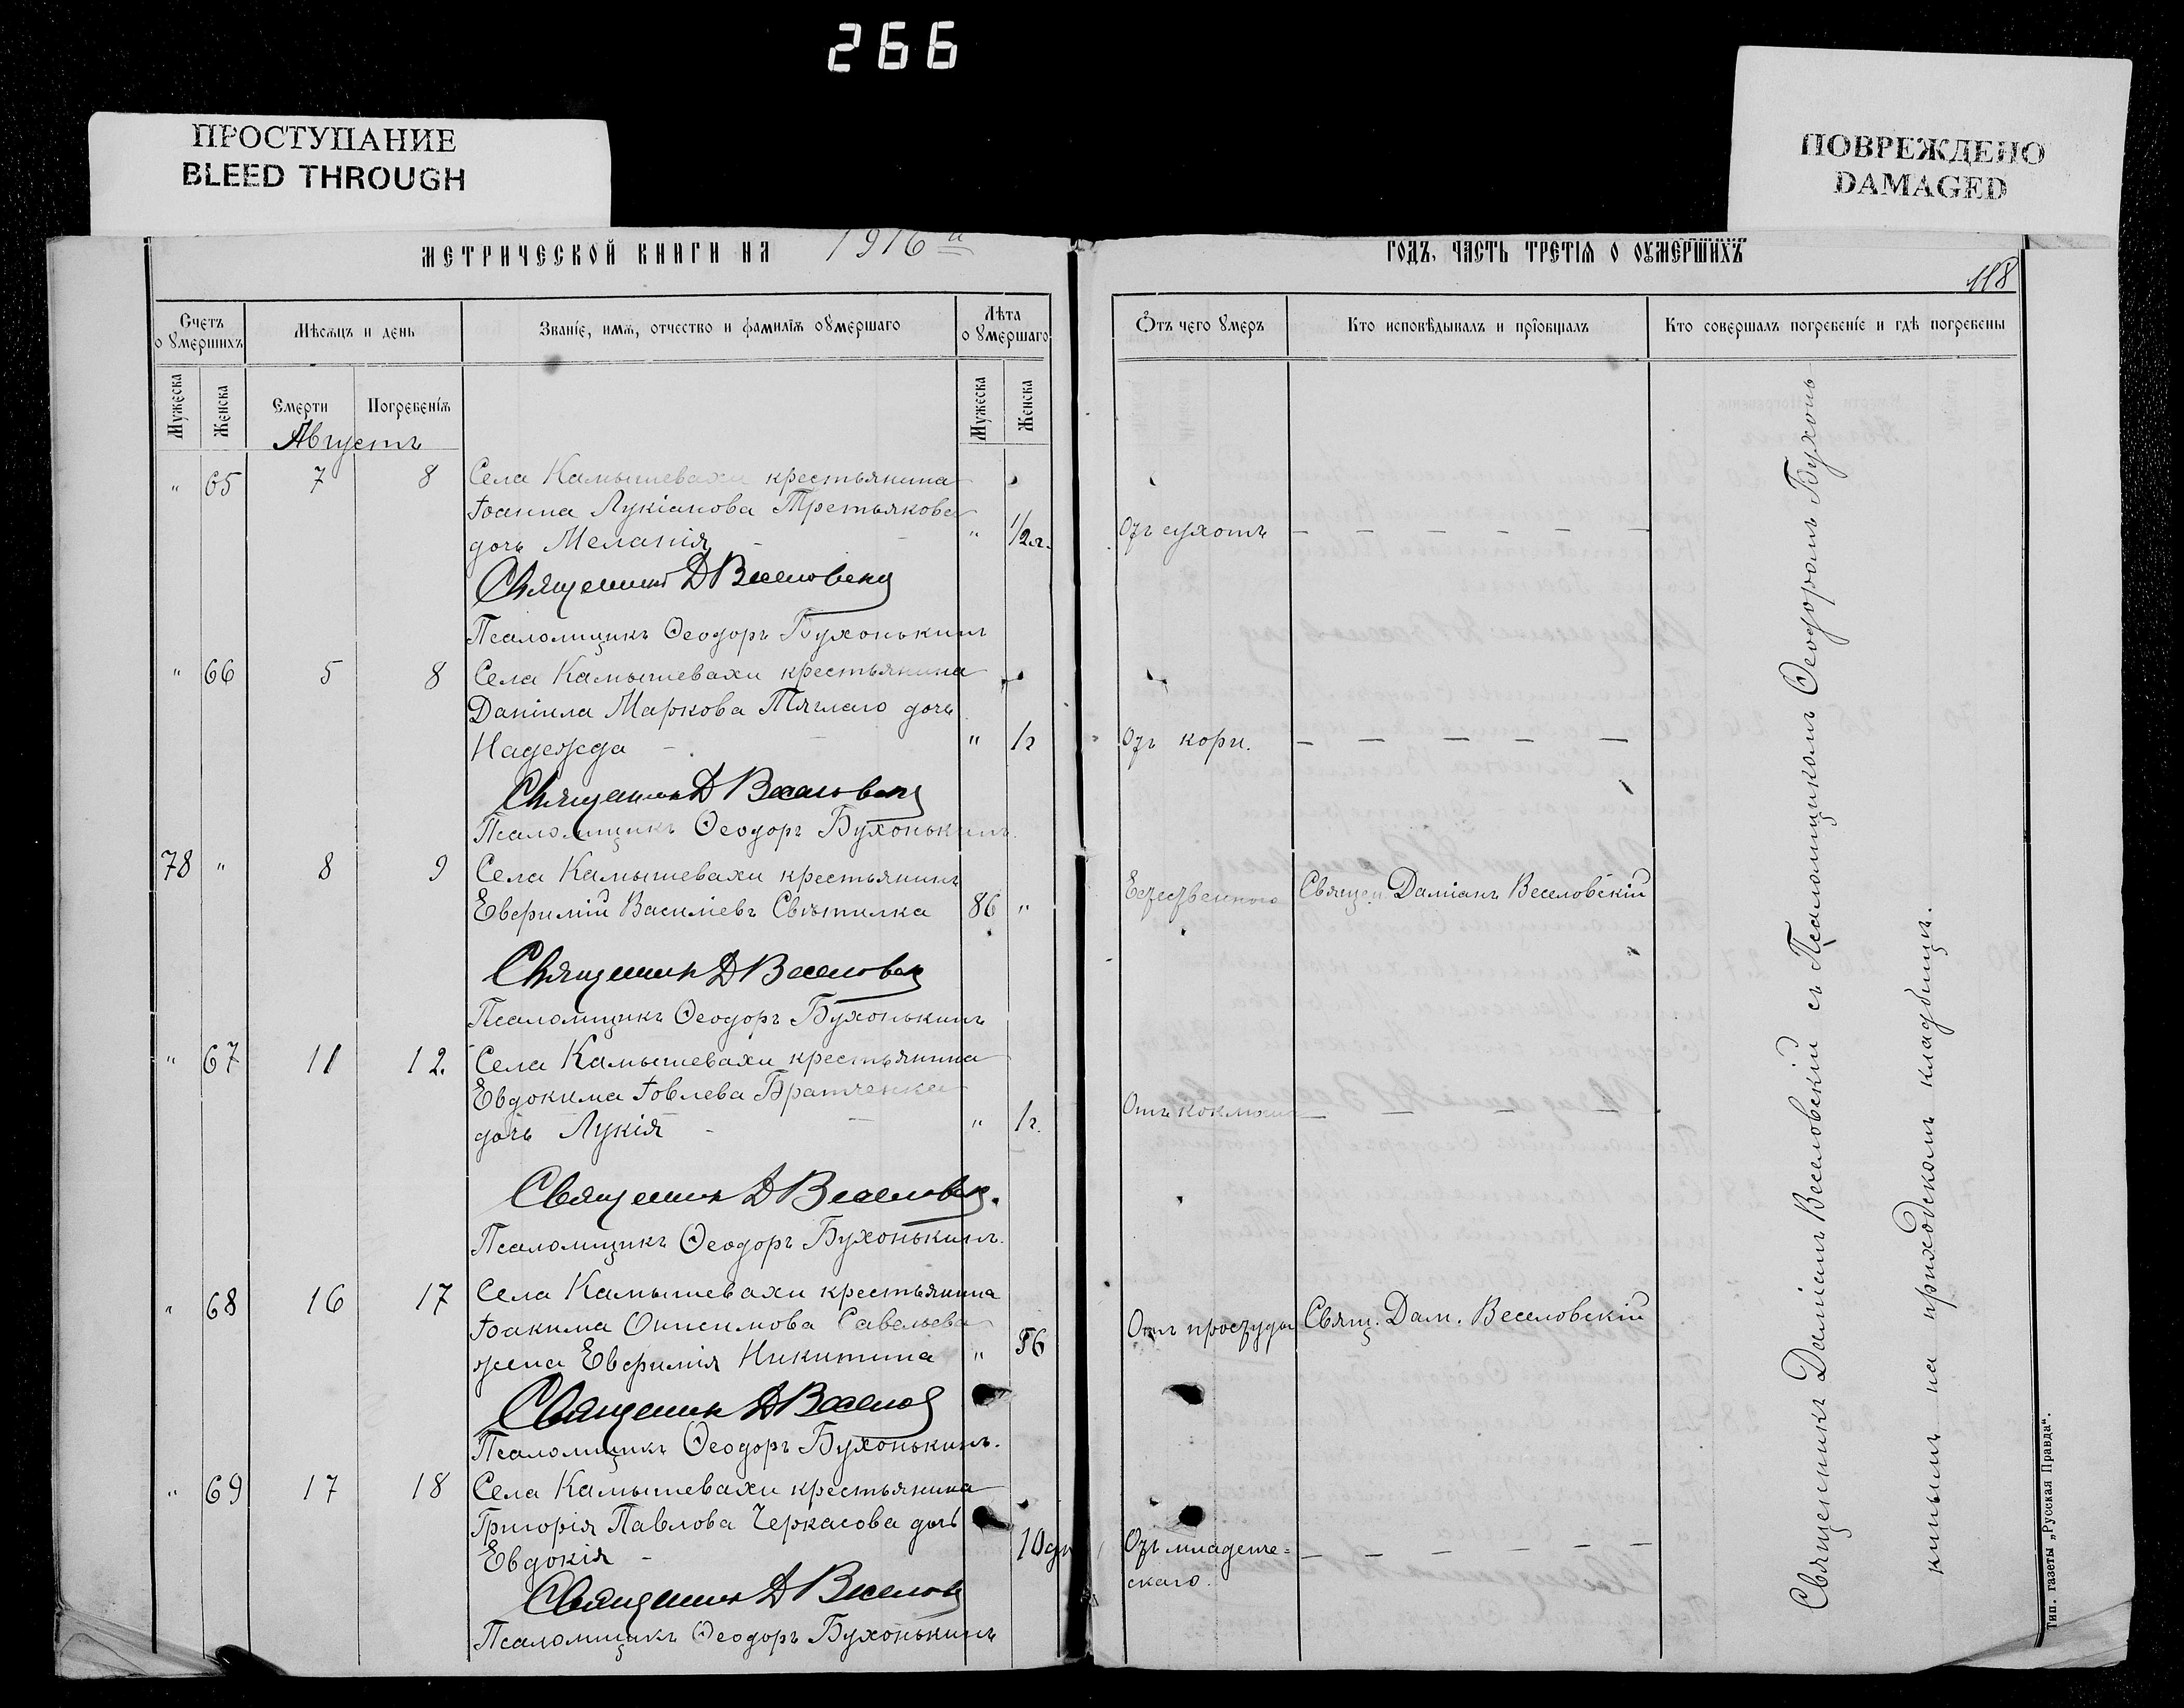 266
ПРОСТУПАНИЕ
BLEED THROUGH
ПОВРЕЖДЕНО
DAMAGED
МЕТРИЧЕСКОЙ КНИГИ НА 1916 й
ГОДЪ, ЧАСТЬ ТРЕТІЯ О ОУМЕРШИХЪ
118
Счетъ о Умершихъ
Мѣсяцъ и день
Званіе, имя, отчество и фамилія оумершаго
Лѣта оумершаго
Мужеска
Женска
Смерти
Погребенія
Мужеска
Женска
Августъ
" 65 7 8 Села Камышевахи крестьянина
Іоанна Лукіанова Третьякова
дочь Меланія - - " 1/2 г.
Священник Д Веселовский
Псаломщикъ Ѳеодоръ Бухонькинъ
" 66 5 8 Села Камышевахи крестьянина
Даніила Маркова Тяглаго дочь
Надежда - - " 1 г
Священник Д Веселовский
Псаломщикъ Ѳеодоръ Бухонькинъ.
78 " 8 9 Села Камышевахи крестьянинъ
Евфимій Василіевъ Свѣтилка 86 "
Священник Д Веселовск
Псаломщикъ Ѳеодоръ Бухонькинъ
" 67 11 12. Села Камышевахи крестьянина
Евдокима Іовлева Братченка
дочь Лукія - - " 1 г.
Священник Д Веселовск.
Псаломщикъ Ѳеодоръ Бухонькинъ.
" 68 16 17 Села Камышевахи крестьянина
Іоакима Онисимова Савельева
жена Евфимія Никитина " 56
Священник Д Веселов
Псаломщикъ Ѳеодоръ Бухонькинъ.
" 69 17 18 Села Камышевахи крестьянина
Григорія Павлова Черкасова дочь
Евдокія - 10 дн
Священник Д Веселов
Псаломщикъ Ѳеодоръ Бухонькинъ
Отъ чего умеръ
Кто исповѣдывалъ и пріобщалъ
Кто совершалъ погребеніе и гдѣ погребены
Отъ сухотъ — — — — — —
Отъ кори. — — — — —
Естественного Священ Даміанъ Веселовскій
Отъ коклюша — — — —
Отъ простуды Свящ. Дам. Веселовскій
Отъ младенче=
скаго. — — — — — —
Священникъ Даміанъ Веселовскій съ Псаломщикомъ Ѳеодоромъ Бухонь-
кинымъ на приходскомъ кладбищѣ.
Тип. газеты „Русская Правда“.